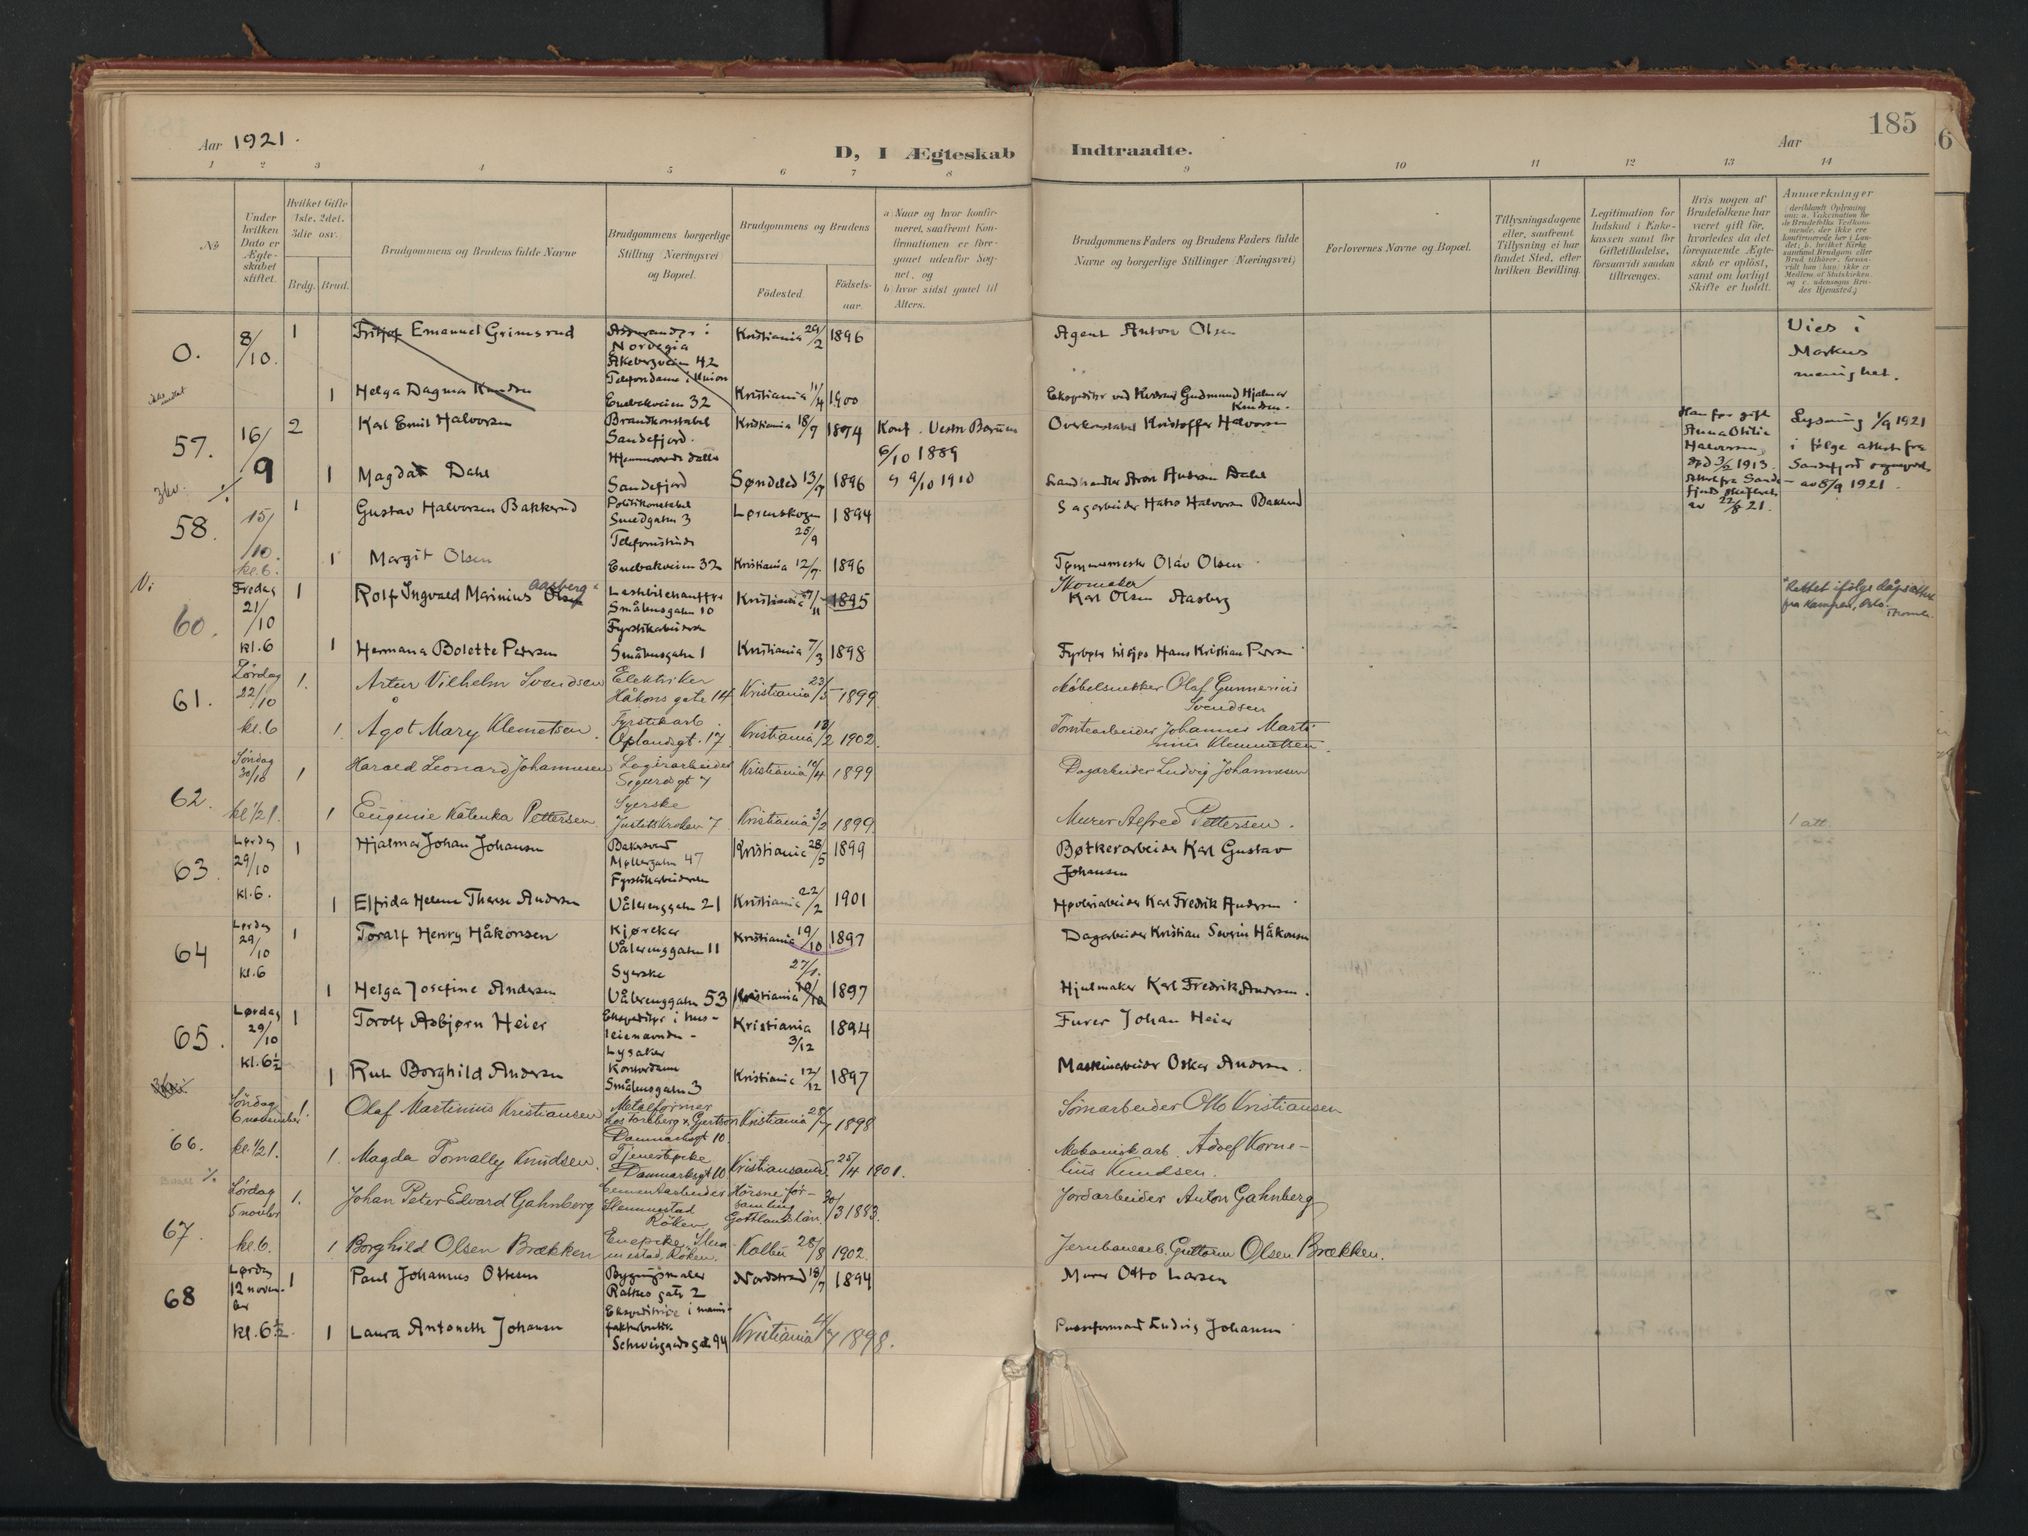 185
Aar 1921.
D, I Ægteskab Indtraadte.
Aar
1 2 3 4 5 6 7 8 9 10 11 12 13 14
№
Under hvilken Dato er Ægteskabet stiftet.
Hvilket Gifte 1ste, 2det, 3die osv.
Brdg. Brud.
Brudgommens og Brudens fulde Navne
Brudgommens borgerlige Stilling (Næringsvei) og Bopæl.
Brudgommens og Brudens
Födested. Födselsaar.
a) Naar og hvor konfirmeret, saafremt Konfirmationen er foregaaet udenfor Sognet, og
b) hvor sidst gaaet til Alters.
Brudgommens Faders og Brudens Faders fulde Navne og borgerlige Stillinger (Næringsvei)
Forlovernes Navne og Bopæl.
Tillysningsdagene eller, saafremt Tillysning ei har fundet Sted, efter hvilken Bevilling.
Legitimation for Indskud i Enkekassen samt for Giftetilladelse, forsaavidt saadan tiltrænges.
Hvis nogen af Brudefolkene har været gift før, hvorledes da det foregaaende Ægteskab er oplöst, samt om lovligt Skifte er holdt.
Anmærkninger
0. 8/10. 1 Fritjof Emanuel Grimsrud
Norvegia
Akebergveien 42
Kristiania 29/2 1896
Agent Anton Olsen
Vies i Markus menighet.
1 Helga Dagmar Knudsen
Telefondame i Union
Enebakveien 32
Kristiania 11/4 1900
Ekspeditør Gudmund Hjalmar Knudsen.
57. 16/9 2 Karl Emil Halvorsen
Brandkonstabel
Sandefjord.
Kristiania 18/7 1874
Konf. Vestre Bærum
6/10 1889
Overkonstabel Kristoffer Halvorsen
Han før gift Anna Otilie Halvorsen, død 3/2 1913. Attest fra Sandefjords skifterett av 22/8 21.
Lysning 1/9 1921 i følge attest fra Sandefjord av 8/9 1921.
1 Magda Dahl
Sandefjord
Søndeled 13/7 1896
9/10 1910
Landhandler Aron Andersen Dahl
58. 15/10. kl. 6. 1 Gustav Halvorsen Bakkerud
Politikonstabel
Smedgaten 3
Lørenskogen 25/9 1894
Sagarbeider Hans Halvorsen Bakkerud
1 Margit Olsen
Enebakveien 32
Kristiania 12/7 1896
Tømmermester Olav Olsen
60. Fredag 21/10 kl. 6 1 Rolf Ingvald Marinius Olsen Aasberg
Småbergsgaten 10
Kristiania 27/11 1895
Skomaker
Karl Olsen Aasberg
Rettet ifølge dåpsattest fra Kampen, Oslo.
1 Hermana Bolette Petersen
Fyrstikarbeiderske
Småbergsgaten 1
Kristiania 7/3 1898
Fyrbøter til sjøs Hans Kristian Petersen
61. Lørdag 22/10 kl. 6 1. Artur Vilhelm Svendsen
Elektriker
Håkons gate 14
Kristiania 23/5 1899
Møbelsnekker Olaf Gunnerius Svendsen
1. Ågot Mary Klemetsen.
Fyrstikarb.
Oplandsgt. 17.
Kristiania 12/2 1902.
Tomtearbeider Johannes Martinius Klemmetsen.
62. Søndag 30/10 kl 1/2 1. 1 Harald Leonard Johannesen
Lagerarbeider
Sigurdsgt 7
Kristiania 10/4 1899
Dagarbeider Ludvig Johannesen
1 Eugenie Katinka Pettersen.
Syerske
Justitskroken 7
Kristiania 3/2 1899
Murer Alfred Pettersen.
1 att.
63. Lørdag 29/10 kl. 6. 1 Hjalmar Johan Johansen
Bakersvend
Møllergaten 47
Kristiania 28/5 1899
Bøtkerarbeider Karl Gustav Johansen
1 Elfrida Helene Therese Andersen
Fyrstikarbeiderske
Vålerenggaten 21
Kristiania 22/2 1901
Høvleriarbeider Karl Fredrik Andersen
64 Lørdag 29/10 kl. 6 1 Toralf Henry Håkonsen
Kjørekar
Vålerenggaten 11
Kristiania 19/10 1897
Dagarbeider Kristian Severin Håkonsen
1 Helga Josefine Andersen
Syerske
Vålerenggaten 53
Kristiania 27/1. 1897
Hjulmaker Karl Fredrik Andersen.
65. Lørdag 29/10 kl. 6 1/2 1 Torolf Asbjørn Heier
Ekspeditør i husleienævnden -
Lysaker
Kristiania 3/12 1894
Furer Johan Heier
1 Rut Borghild Andersen
Kontordame
Småbergsgaten 3
Kristiania 12/12 1897
Maskinarbeider Oskar Andersen.
66. Søndag 6 november kl. 1/2 1. 1 Olaf Martinius Kristiansen
Metalformer
Danmarksgt 10.
Kristiania 28/7 1898
Tomtearbeider Otto Kristiansen
1. Magda Tomally Knudsen.
Tjenestepike
Danmarksgt 10
Kristiansand 25/4 1901.
Mekanisk arb. Adolf Kornelius Knudsen.
67. Lørdag 5 novbr kl. 6. 1. Johan Peter Edvard Gahnberg
Cementarbeider
Slemmestad
Røken
Hörsne församling
Gottlands län. 30/3 1883.
Jordarbeider Anton Gahnberg
1 Borghild Olsen Brækken
Enepike, Slemmestad, Røken.
Kolbu 28/8 1902.
Jernbanearb. Guttorm Olsen Brækken.
68 Lørdag 12 november kl. 6 1/2. 1 Paul Johannes Ottesen
Bygningsmaler
Ratkes gate 2
Nordstrand 18/7 1894
Murer Otto Larsen
1 Laura Antonette Johansen
Ekspeditrice i manufakturbutik.
Schweigaards gate 94
Kristiania 4/7 1898.
Pusseformand Ludvig Johansen